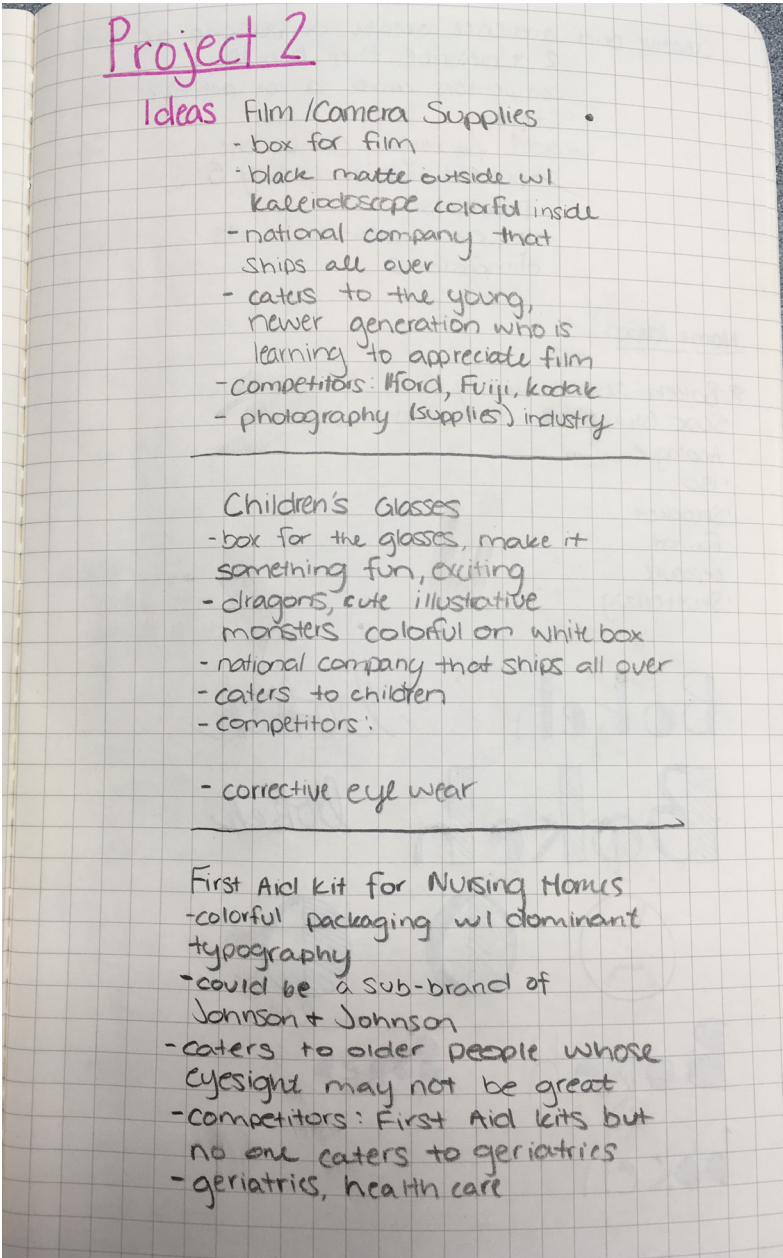 Project 2
Ideas Film / Camera Supplies
- box for film
- black matte outside w/
kaleiodoscope colorful inside
- national company that
ships all over
- caters to the young,
newer generation who is
learning to appreciate film
- competitors: Ilford, Fuiji, kodak
- photography (supplies) industry
Children's Glasses
- box for the glasses, make it
something fun, exciting
- dragons, cute illustrative
monsters colorful on white box
- national company that ships all over
- caters to children
- competitors:
- corrective eye wear
First Aid Kit for Nursing Homes
- colorful packaging w/ dominant
typography
- could be a sub-brand of
Johnson + Johnson
- caters to older people whose
eyesight may not be great
- competitors: First Aid kits but
no one caters to geriatrics
- geriatrics, health care